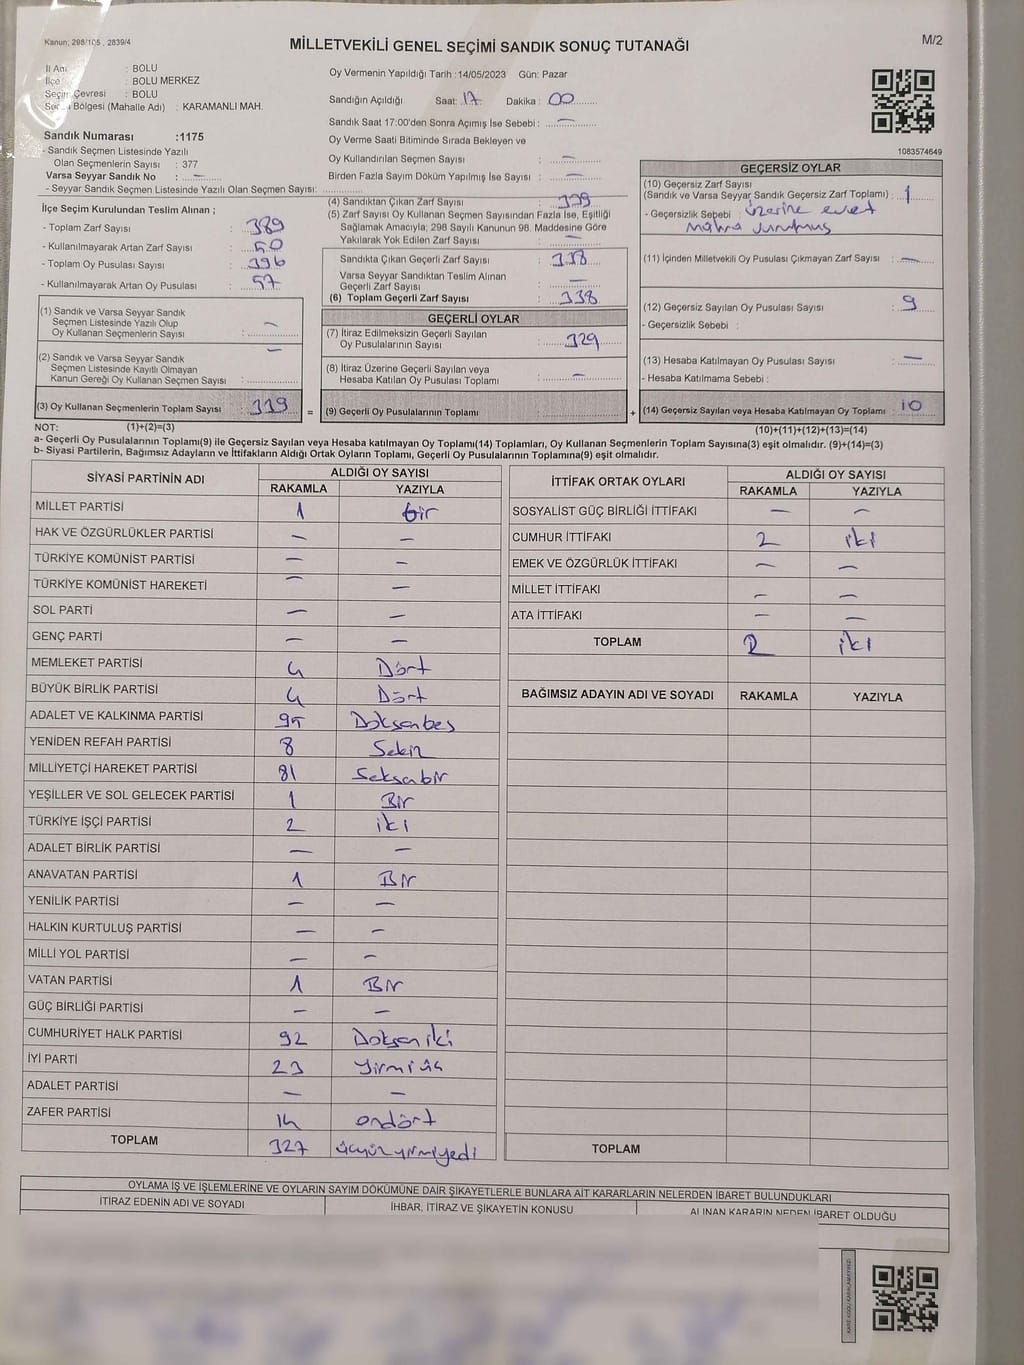 Kanun: 298/105 , 2839/4
MİLLETVEKİLİ GENEL SEÇİMİ SANDIK SONUÇ TUTANAĞI
M/2
İl Adı : BOLU
İlçe : BOLU MERKEZ
Seçim Çevresi : BOLU
Seçim Bölgesi (Mahalle Adı) : KARAMANLI MAH.
Sandık Numarası :1175
- Sandık Seçmen Listesinde Yazılı
Olan Seçmenlerin Sayısı : 377
Varsa Seyyar Sandık No : —
- Seyyar Sandık Seçmen Listesinde Yazılı Olan Seçmen Sayısı:
Oy Vermenin Yapıldığı Tarih :14/05/2023 Gün: Pazar
Sandığın Açıldığı Saat: 17 Dakika : 00
Sandık Saat 17:00'den Sonra Açımış İse Sebebi : —
Oy Verme Saati Bitiminde Sırada Bekleyen ve
Oy Kullandırılan Seçmen Sayısı : —
Birden Fazla Sayım Döküm Yapılmış İse Sayısı : —
1083574649
İlçe Seçim Kurulundan Teslim Alınan ;
- Toplam Zarf Sayısı : 389
- Kullanılmayarak Artan Zarf Sayısı : 50
- Toplam Oy Pusulası Sayısı : 396
- Kullanılmayarak Artan Oy Pusulası : 57
(1) Sandık ve Varsa Seyyar Sandık
Seçmen Listesinde Yazılı Olup
Oy Kullanan Seçmenlerin Sayısı : —
(2) Sandık ve Varsa Seyyar Sandık
Seçmen Listesinde Kayıtlı Olmayan
Kanun Gereği Oy Kullanan Seçmen Sayısı : —
(3) Oy Kullanan Seçmenlerin Toplam Sayısı : 339
(4) Sandıktan Çıkan Zarf Sayısı : 339
(5) Zarf Sayısı Oy Kullanan Seçmen Sayısından Fazla İse, Eşitliği
Sağlamak Amacıyla; 298 Sayılı Kanunun 98. Maddesine Göre
Yakılarak Yok Edilen Zarf Sayısı : —
Sandıkta Çıkan Geçerli Zarf Sayısı : 338
Varsa Seyyar Sandıktan Teslim Alınan
Geçerli Zarf Sayısı : —
(6) Toplam Geçerli Zarf Sayısı : 338
GEÇERLİ OYLAR
(7) İtiraz Edilmeksizin Geçerli Sayılan
Oy Pusulalarının Sayısı : 329
(8) İtiraz Üzerine Geçerli Sayılan veya
Hesaba Katılan Oy Pusulası Toplamı : —
= (9) Geçerli Oy Pusulalarının Toplamı :
GEÇERSİZ OYLAR
(10) Geçersiz Zarf Sayısı
(Sandık ve Varsa Seyyar Sandık Geçersiz Zarf Toplamı) : 1
- Geçersizlik Sebebi : üzerine evet
vurulmuş
(11) İçinden Milletvekili Oy Pusulası Çıkmayan Zarf Sayısı : —
(12) Geçersiz Sayılan Oy Pusulası Sayısı : 9
- Geçersizlik Sebebi :
(13) Hesaba Katılmayan Oy Pusulası Sayısı : —
- Hesaba Katılmama Sebebi :
+ (14) Geçersiz Sayılan veya Hesaba Katılmayan Oy Toplamı : 10
NOT: (1)+(2)=(3) (10)+(11)+(12)+(13)=(14)
a- Geçerli Oy Pusulalarının Toplamı(9) ile Geçersiz Sayılan veya Hesaba katılmayan Oy Toplamı(14) Toplamları, Oy Kullanan Seçmenlerin Toplam Sayısına(3) eşit olmalıdır. (9)+(14)=(3)
b- Siyasi Partilerin, Bağımsız Adayların ve İttifakların Aldığı Ortak Oyların Toplamı, Geçerli Oy Pusulalarının Toplamına(9) eşit olmalıdır.
SİYASİ PARTİNİN ADI ALDIĞI OY SAYISI
RAKAMLA YAZIYLA
MİLLET PARTİSİ 1 bir
HAK VE ÖZGÜRLÜKLER PARTİSİ — —
TÜRKİYE KOMÜNİST PARTİSİ — —
TÜRKİYE KOMÜNİST HAREKETİ — —
SOL PARTİ —
GENÇ PARTİ — —
MEMLEKET PARTİSİ 4 Dört
BÜYÜK BİRLİK PARTİSİ 4 Dört
ADALET VE KALKINMA PARTİSİ 95 Doksanbeş
YENİDEN REFAH PARTİSİ 8 Sekiz
MİLLİYETÇİ HAREKET PARTİSİ 81 Seksabir
YEŞİLLER VE SOL GELECEK PARTİSİ 1 Bir
TÜRKİYE İŞÇİ PARTİSİ 2 iki
ADALET BİRLİK PARTİSİ — —
ANAVATAN PARTİSİ 1 Bir
YENİLİK PARTİSİ — —
HALKIN KURTULUŞ PARTİSİ — —
MİLLİ YOL PARTİSİ — —
VATAN PARTİSİ 1 Bir
GÜÇ BİRLİĞİ PARTİSİ — —
CUMHURİYET HALK PARTİSİ 92 Doksan iki
İYİ PARTİ 23 yirmi üç
ADALET PARTİSİ — —
ZAFER PARTİSİ 14 ondört
TOPLAM 327 üçyüzyirmiyedi
İTTİFAK ORTAK OYLARI ALDIĞI OY SAYISI
RAKAMLA YAZIYLA
SOSYALİST GÜÇ BİRLİĞİ İTTİFAKI — —
CUMHUR İTTİFAKI 2 iki
EMEK VE ÖZGÜRLÜK İTTİFAKI — —
MİLLET İTTİFAKI — —
ATA İTTİFAKI — —
TOPLAM 2 iki
BAĞIMSIZ ADAYIN ADI VE SOYADI RAKAMLA YAZIYLA
TOPLAM
OYLAMA İŞ VE İŞLEMLERİNE VE OYLARIN SAYIM DÖKÜMÜNE DAİR ŞİKAYETLERLE BUNLARA AİT KARARLARIN NELERDEN İBARET BULUNDUKLARI
İTİRAZ EDENİN ADI VE SOYADI İHBAR, İTİRAZ VE ŞİKAYETİN KONUSU ALINAN KARARIN NEDEN İBARET OLDUĞU